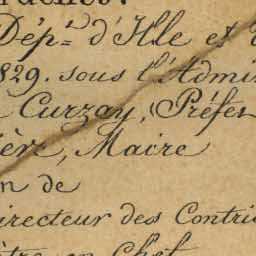 Dép.t d'Ille et
1829. sous l'Admi
Curzay, (Préfet
ière, Maire
n de
irecteur des Contri
en Chef